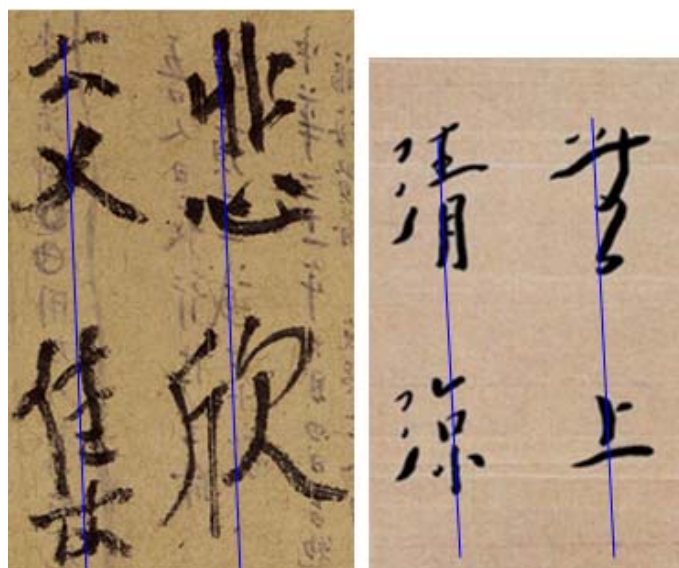 悲欣
交集
無上
清涼